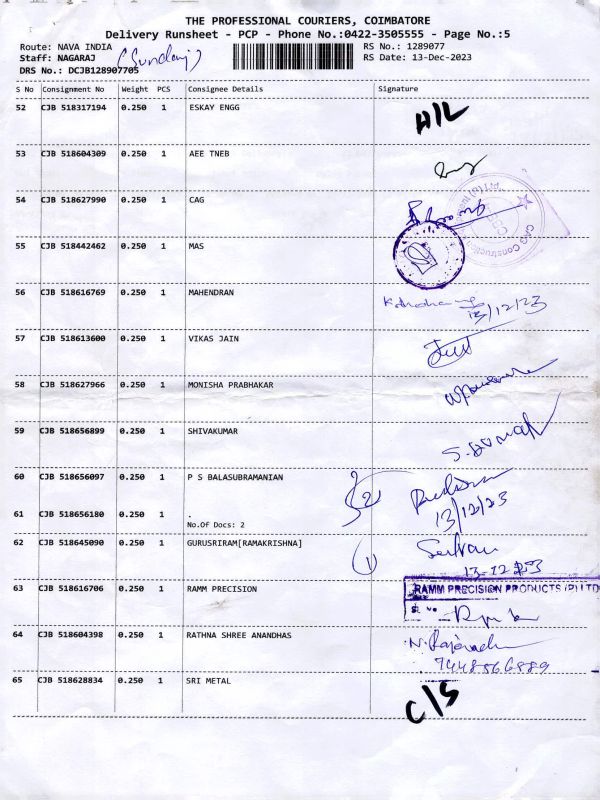 THE PROFESSIONAL COURIERS, COIMBATORE
Delivery Runsheet - PCP - Phone No.:0422-3505555 - Page No.:5
Route: NAVA INDIA
RS No.: 1289077
Staff: NAGARAJ (Sundar)
RS Date: 13-Dec-2023
DRS No.: DCJB128907705
S No Consignment No Weight PCS Consignee Details Signature
52 CJB 518317194 0.250 1 ESKAY ENGG H/L
53 CJB 518604309 0.250 1 AEE TNEB
54 CJB 518627990 0.250 1 CAG
CAG Construction
55 CJB 518442462 0.250 1 MAS
56 CJB 518616769 0.250 1 MAHENDRAN
13/12/23
57 CJB 518613600 0.250 1 VIKAS JAIN
58 CJB 518627966 0.250 1 MONISHA PRABHAKAR
59 CJB 518656899 0.250 1 SHIVAKUMAR
60 CJB 518656097 0.250 1 P S BALASUBRAMANIAN (2)
61 CJB 518656180 0.250 1 . 13/12/23
No.Of Docs: 2
62 CJB 518645090 0.250 1 GURUSRIRAM[RAMAKRISHNA] (1)
13-12-23
63 CJB 518616706 0.250 1 RAMM PRECISION RAMM PRECISION PRODUCTS (P) LTD
64 CJB 518604398 0.250 1 RATHNA SHREE ANANDHAS
7448566889
65 CJB 518628834 0.250 1 SRI METAL C/S